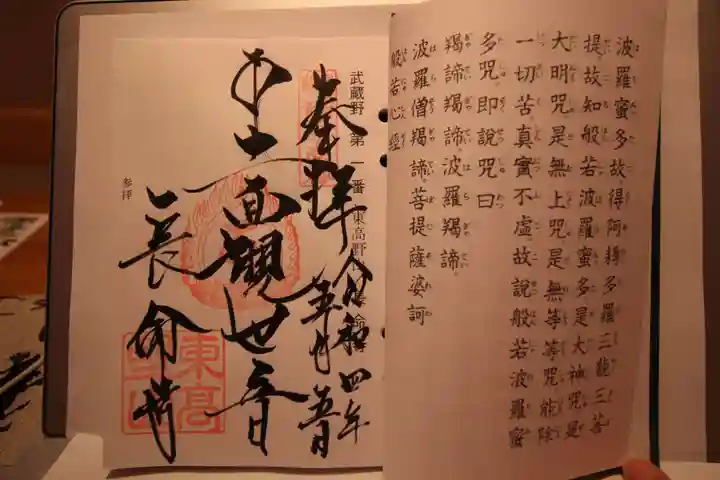 波羅蜜多故得阿耨多羅三藐三菩
提故知般若波羅蜜多是大神咒是
大明咒是無上咒是無等等咒能除
一切苦真實不虛故說般若波羅蜜
多咒即說咒曰
羯諦羯諦波羅羯諦
波羅僧羯諦菩提薩婆訶
般若心經
武蔵野 第一番 東高野
奉拝 令和四年
五月五日
十一面観世音
長命寺
参拝
東高